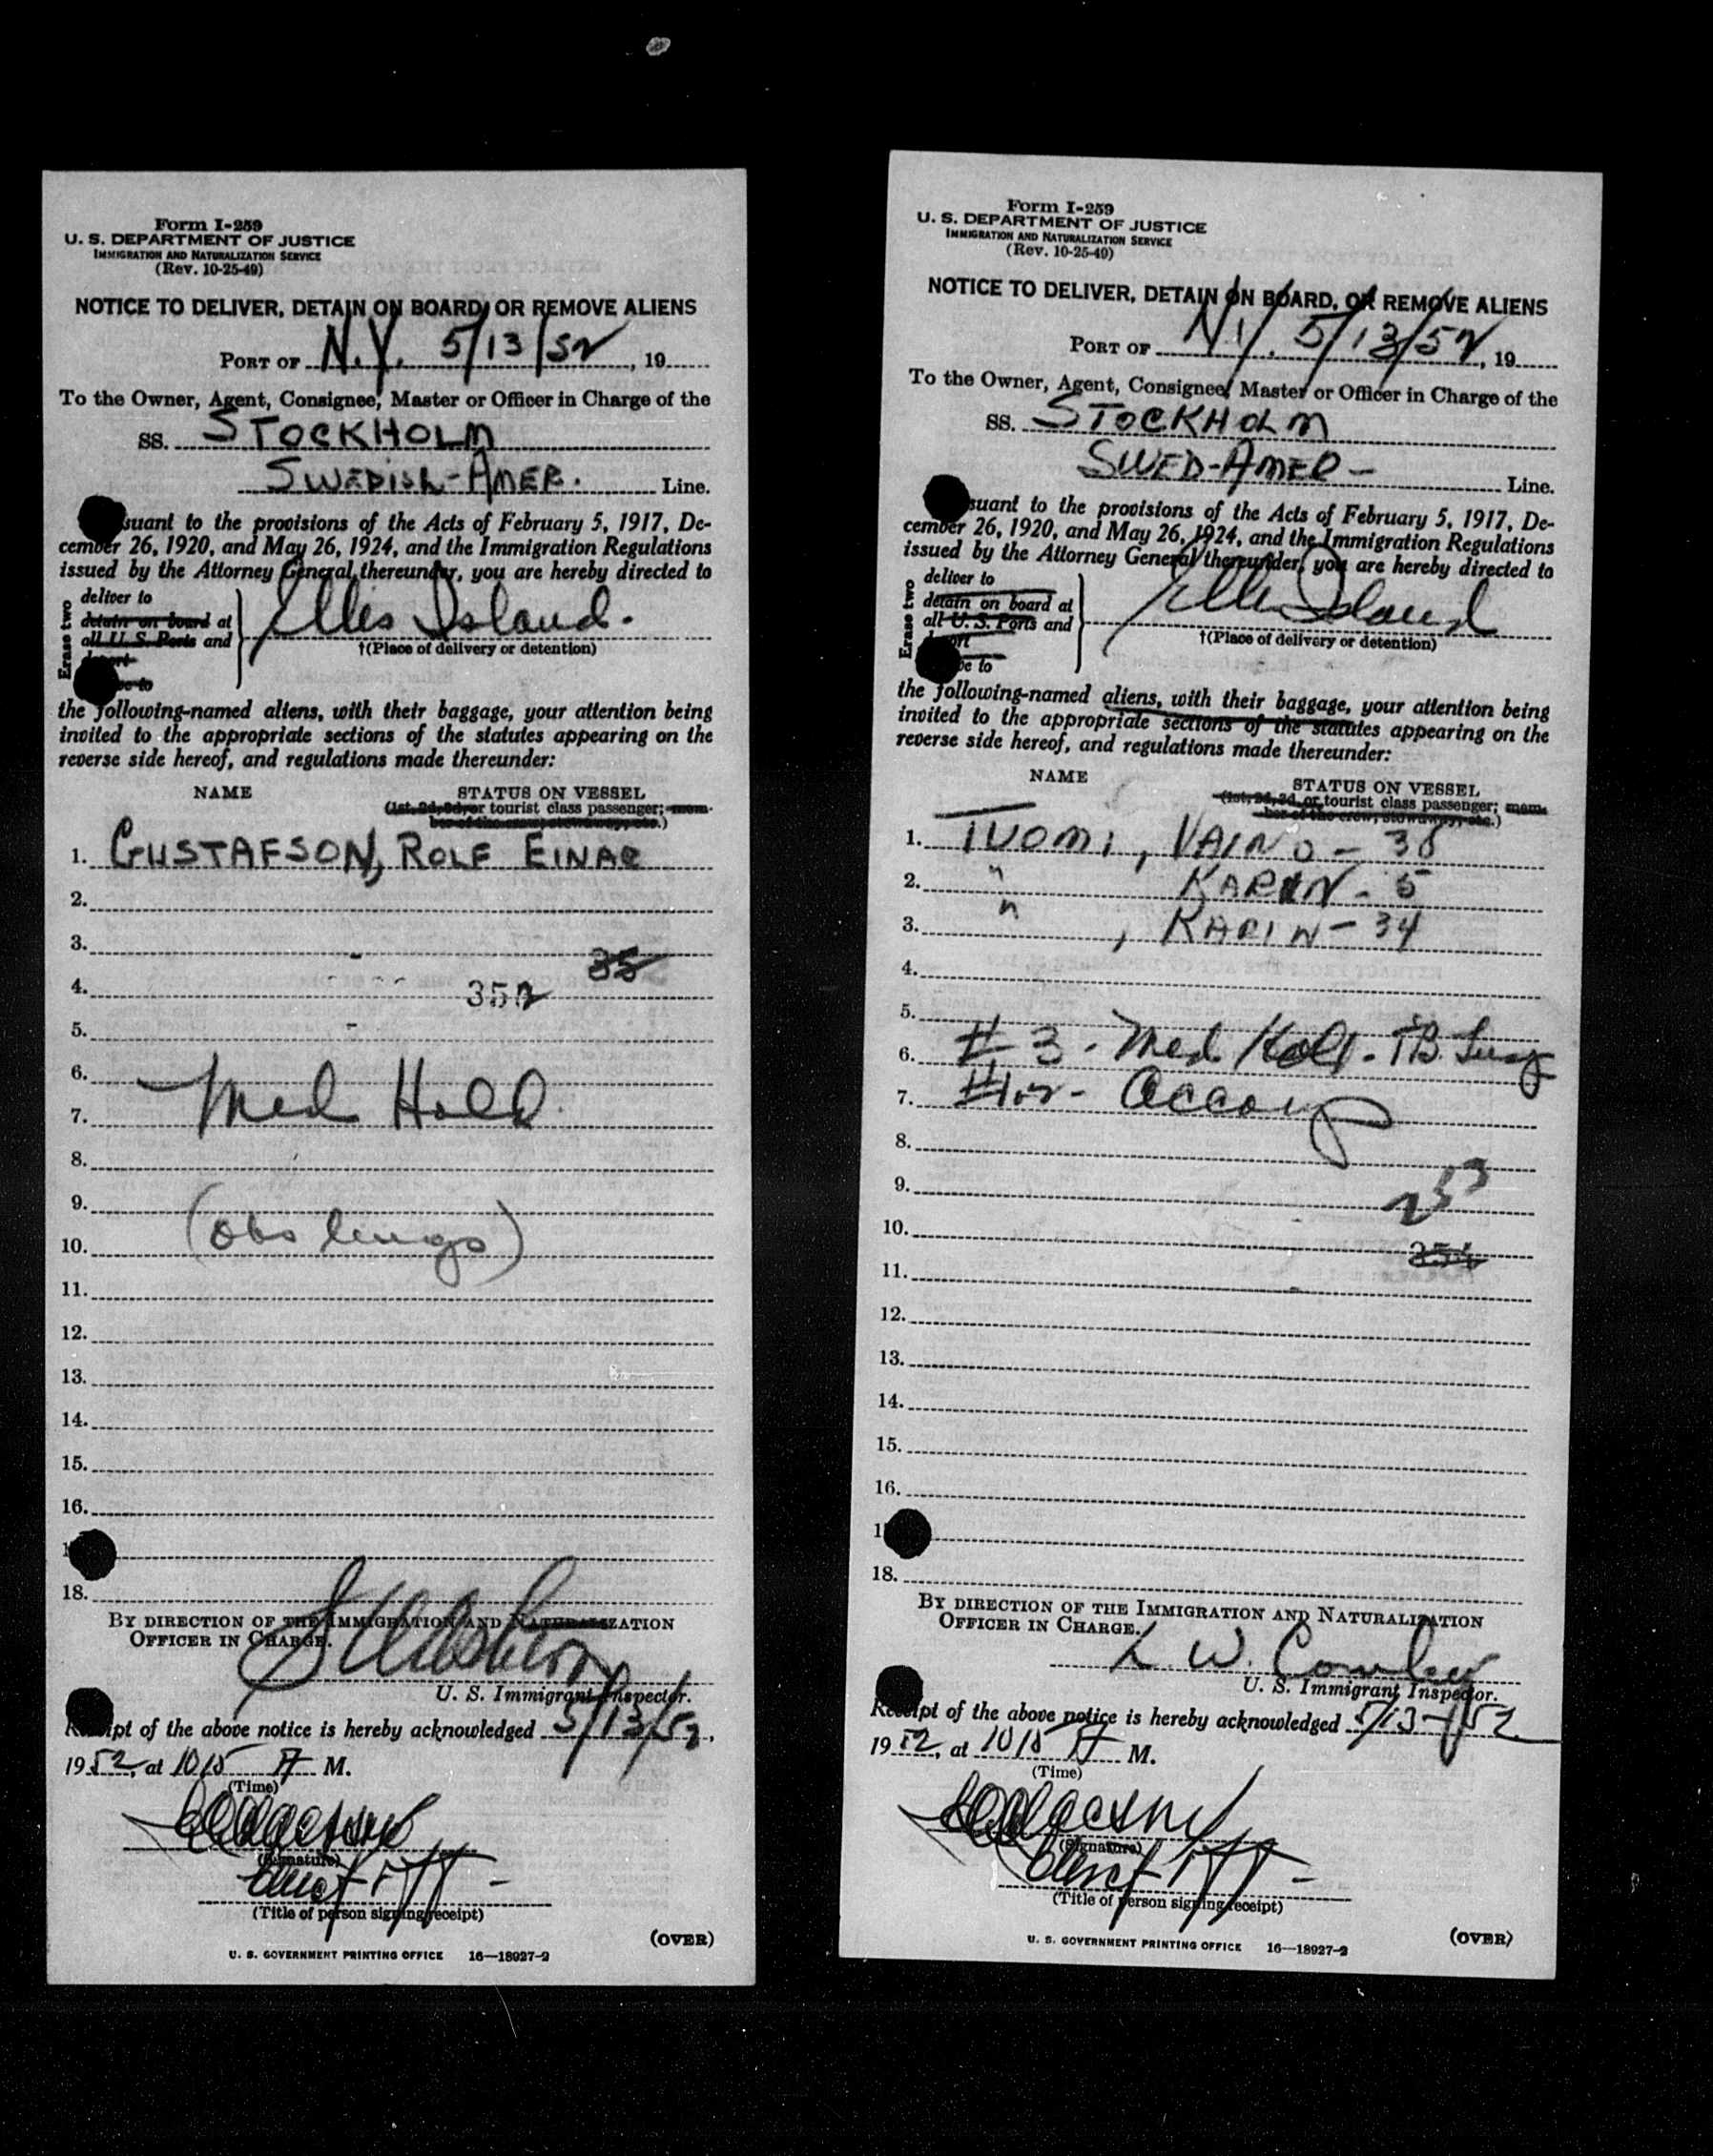 Form I-259
U. S. DEPARTMENT OF JUSTICE
IMMIGRATION AND NATURALIZATION SERVICE
(Rev. 10-25-49)
NOTICE TO DELIVER, DETAIN ON BOARD, OR REMOVE ALIENS
PORT OF N.Y. 5/13/52, 19
To the Owner, Agent, Consignee, Master or Officer in Charge of the
SS. STOCKHOLM
SWEDISH-AMER. Line.
suant to the provisions of the Acts of February 5, 1917, De-
cember 26, 1920, and May 26, 1924, and the Immigration Regulations
issued by the Attorney General thereunder, you are hereby directed to
Erase two
deliver to
detain on board at
all U. S. Ports and
Ellis Island.
†(Place of delivery or detention)
the following-named aliens, with their baggage, your attention being
invited to the appropriate sections of the statutes appearing on the
reverse side hereof, and regulations made thereunder:
NAME STATUS ON VESSEL
(1st, 2d, 3d, or tourist class passenger; mem-
ber of the crew; stowaway, etc.)
1. GUSTAFSON, ROLF EINAR
2.
3.
35
4. 352
5.
6.
7. Med Hold
8.
9.
10. (obs lungs)
11.
12.
13.
14.
15.
16.
18.
BY DIRECTION OF THE IMMIGRATION AND NATURALIZATION
OFFICER IN CHARGE.
U. S. Immigrant Inspector.
Receipt of the above notice is hereby acknowledged 5/13/52,
1952, at 1015 A M.
(Time)
(Signature)
(Title of person signing receipt)
(OVER)
U. S. GOVERNMENT PRINTING OFFICE 16—18927-2
Form I-259
U. S. DEPARTMENT OF JUSTICE
IMMIGRATION AND NATURALIZATION SERVICE
(Rev. 10-25-49)
NOTICE TO DELIVER, DETAIN ON BOARD, OR REMOVE ALIENS
PORT OF N.Y. 5/13/52, 19
To the Owner, Agent, Consignee, Master or Officer in Charge of the
SS. STOCKHOLM
SWED-AMER- Line.
suant to the provisions of the Acts of February 5, 1917, De-
cember 26, 1920, and May 26, 1924, and the Immigration Regulations
issued by the Attorney General thereunder, you are hereby directed to
Erase two
deliver to
detain on board at
all U. S. Ports and
Ellis Island
†(Place of delivery or detention)
the following-named aliens, with their baggage, your attention being
invited to the appropriate sections of the statutes appearing on the
reverse side hereof, and regulations made thereunder:
NAME STATUS ON VESSEL
(1st, 2d, 3d, or tourist class passenger; mem-
ber of the crew; stowaway, etc.)
1. TUOMI, VAINO - 38
2. " KARIN - 5
3. " , KARIN - 34
4.
5.
6. #3 - Med Hold - TB Lung
7. #1+2 - Accomp
8.
9. 253
10.
254
11.
12.
13.
14.
15.
16.
18.
BY DIRECTION OF THE IMMIGRATION AND NATURALIZATION
OFFICER IN CHARGE.
L. W.
U. S. Immigrant Inspector.
Receipt of the above notice is hereby acknowledged 5/13/52
1952, at 1015 A M.
(Time)
(Signature)
(Title of person signing receipt)
(OVER)
U. S. GOVERNMENT PRINTING OFFICE 16—18927-2